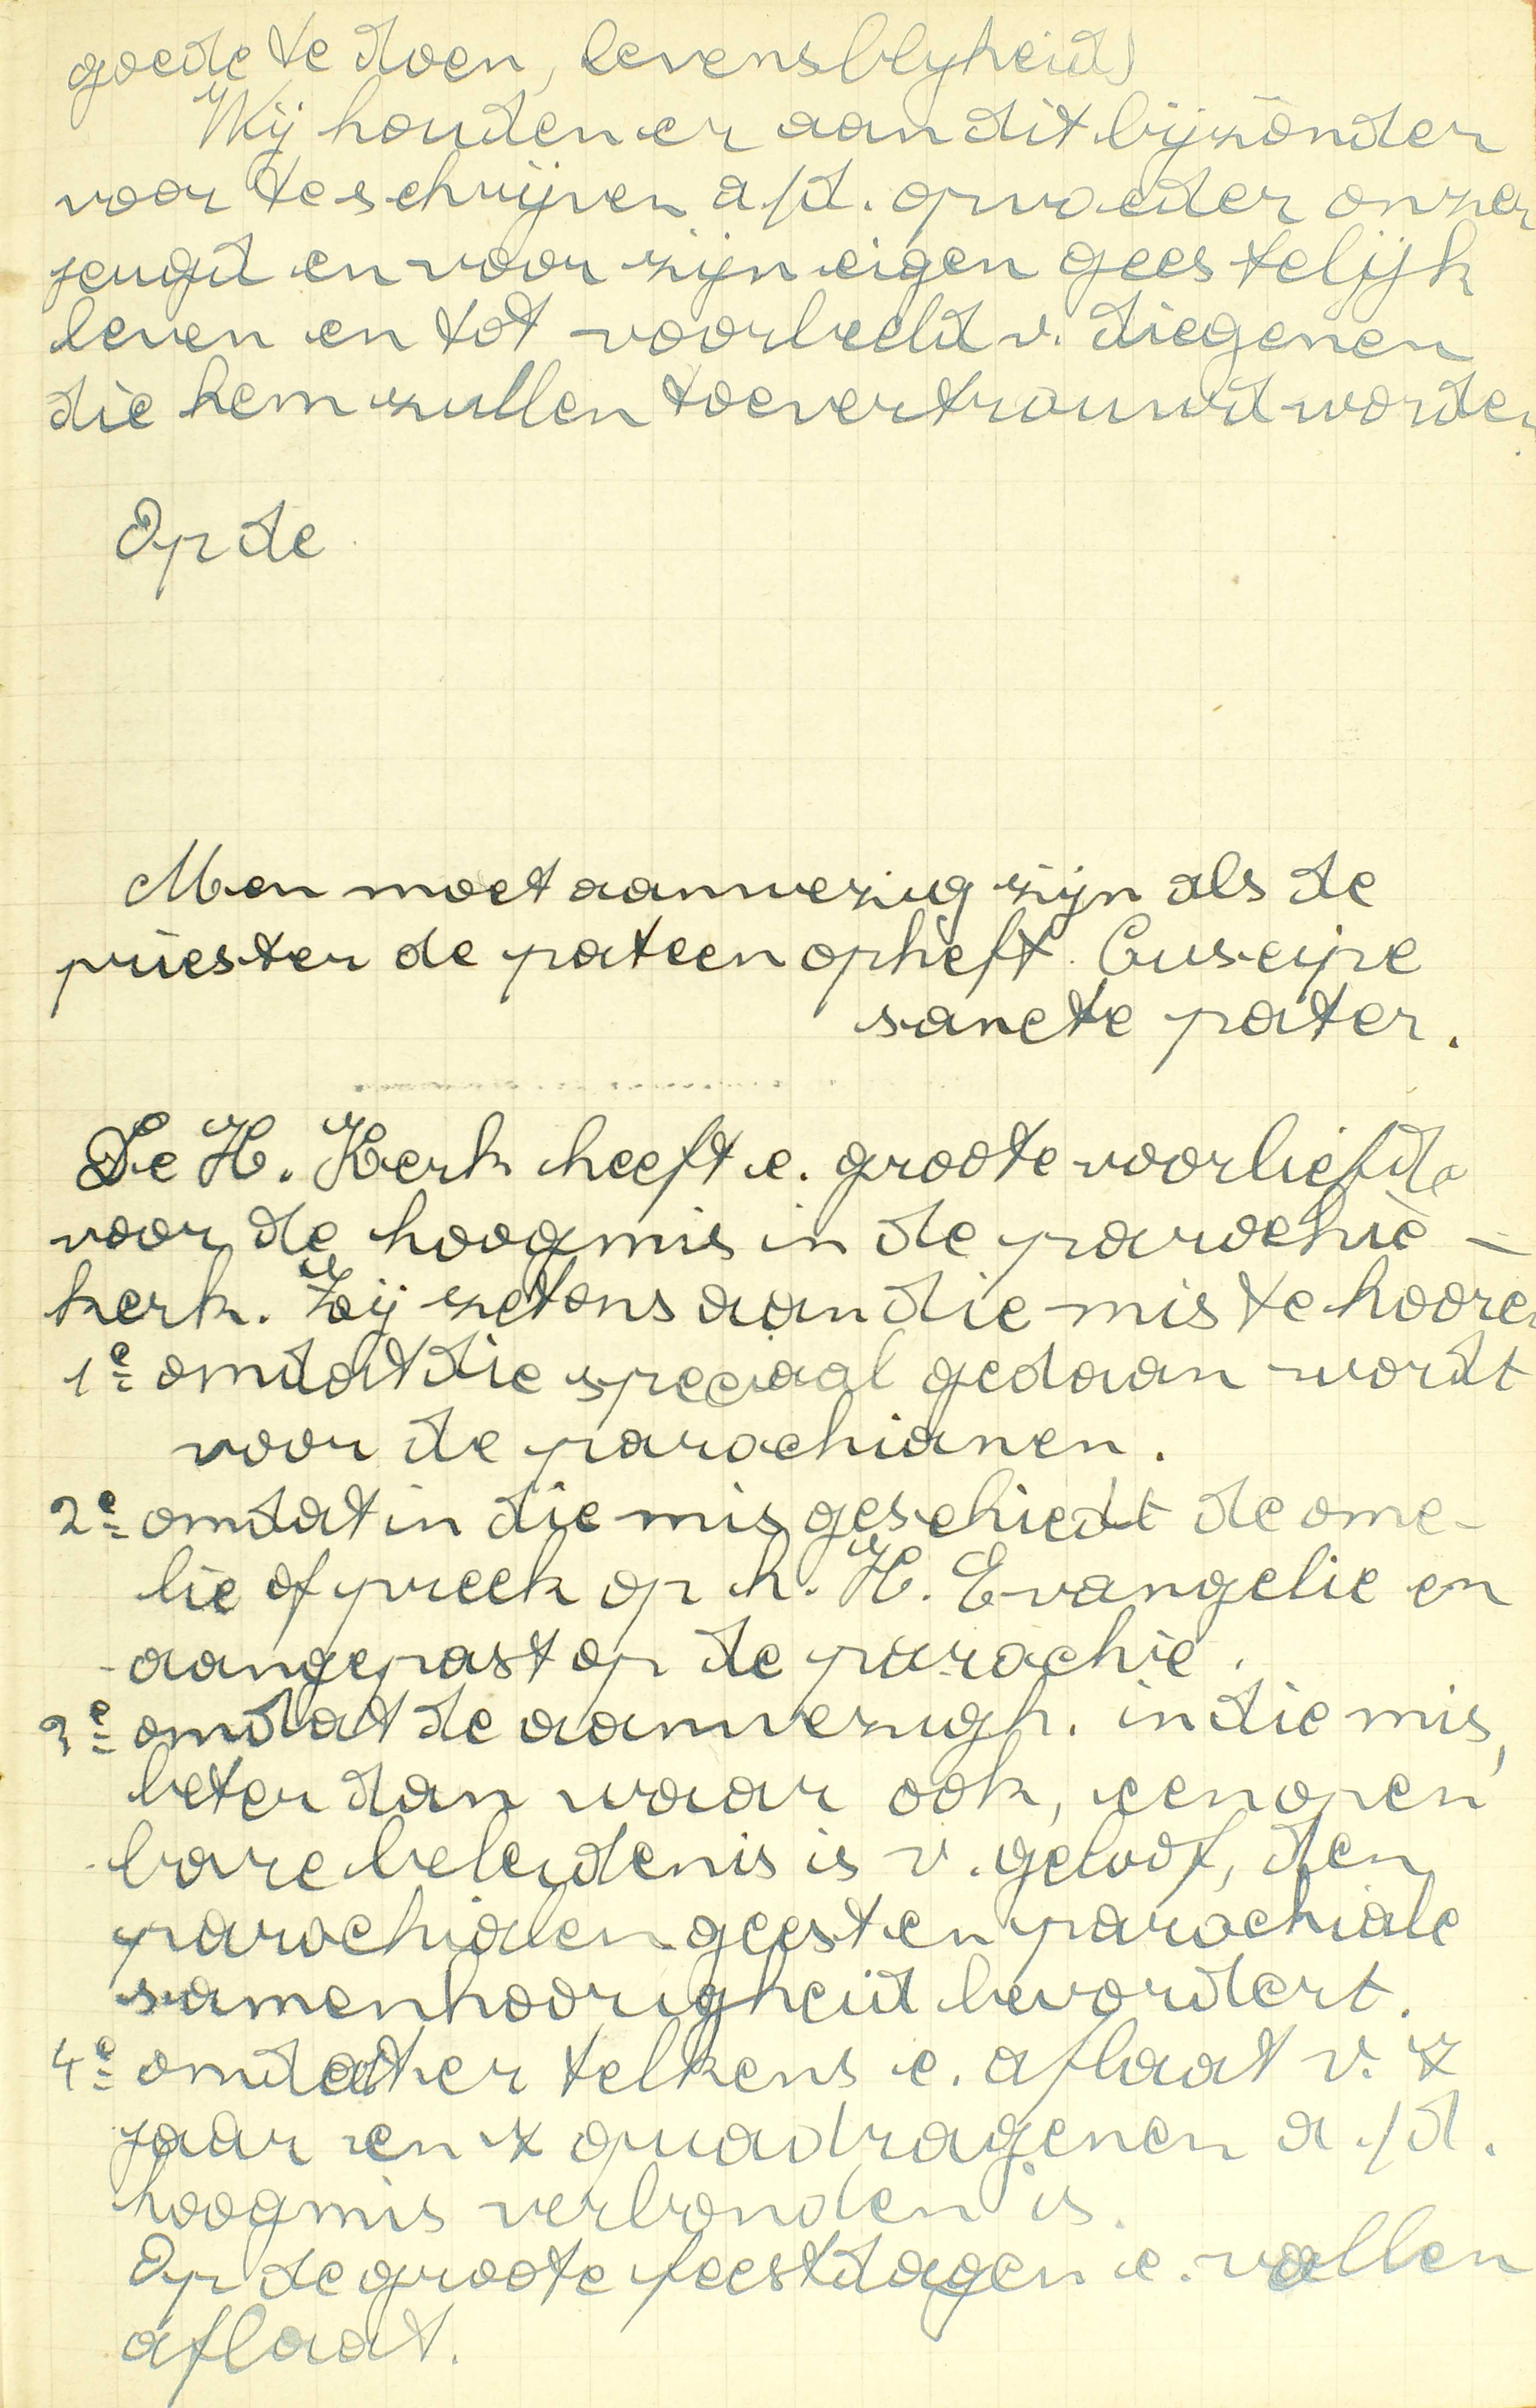 goede te doen, levensblyheid)
Wij houden er aan dit bijzonder
voor te schrijven a/d. opvoeder onzer
jeugd en voor zijn eigen geestelijk
leven en tot voorbeeld v. diegenen
die hem zullen toevertrouwd worden.
Op de
Men moet aanwezig zijn als de
priester de pateen opheft. Suscipe
sancte pater.
De H. Kerk heeft e. groote voorliefde
voor de hoogmis in de parochie-
kerk. Zij zet ons aan die mis te hooren
1e omdat die speciaal gedaan wordt
voor de parochianen.
2e omdat in die mis geschiedt de ome-
lie of preek op h. H. Evangelie en
aangepast op de parochie.
3e omdat de aanwezigh. in die mis,
beter dan waar ook, een open
bare belijdenis is v. geloof, den
parochialen geest en parochiale
samenhoorigheid bevordert.
4e omdat er telkens e. aflaat v. 7
jaar en 7 quadragenen a/d.
hoogmis verbonden is.
Op de groote feestdagen e. vollen
aflaat.